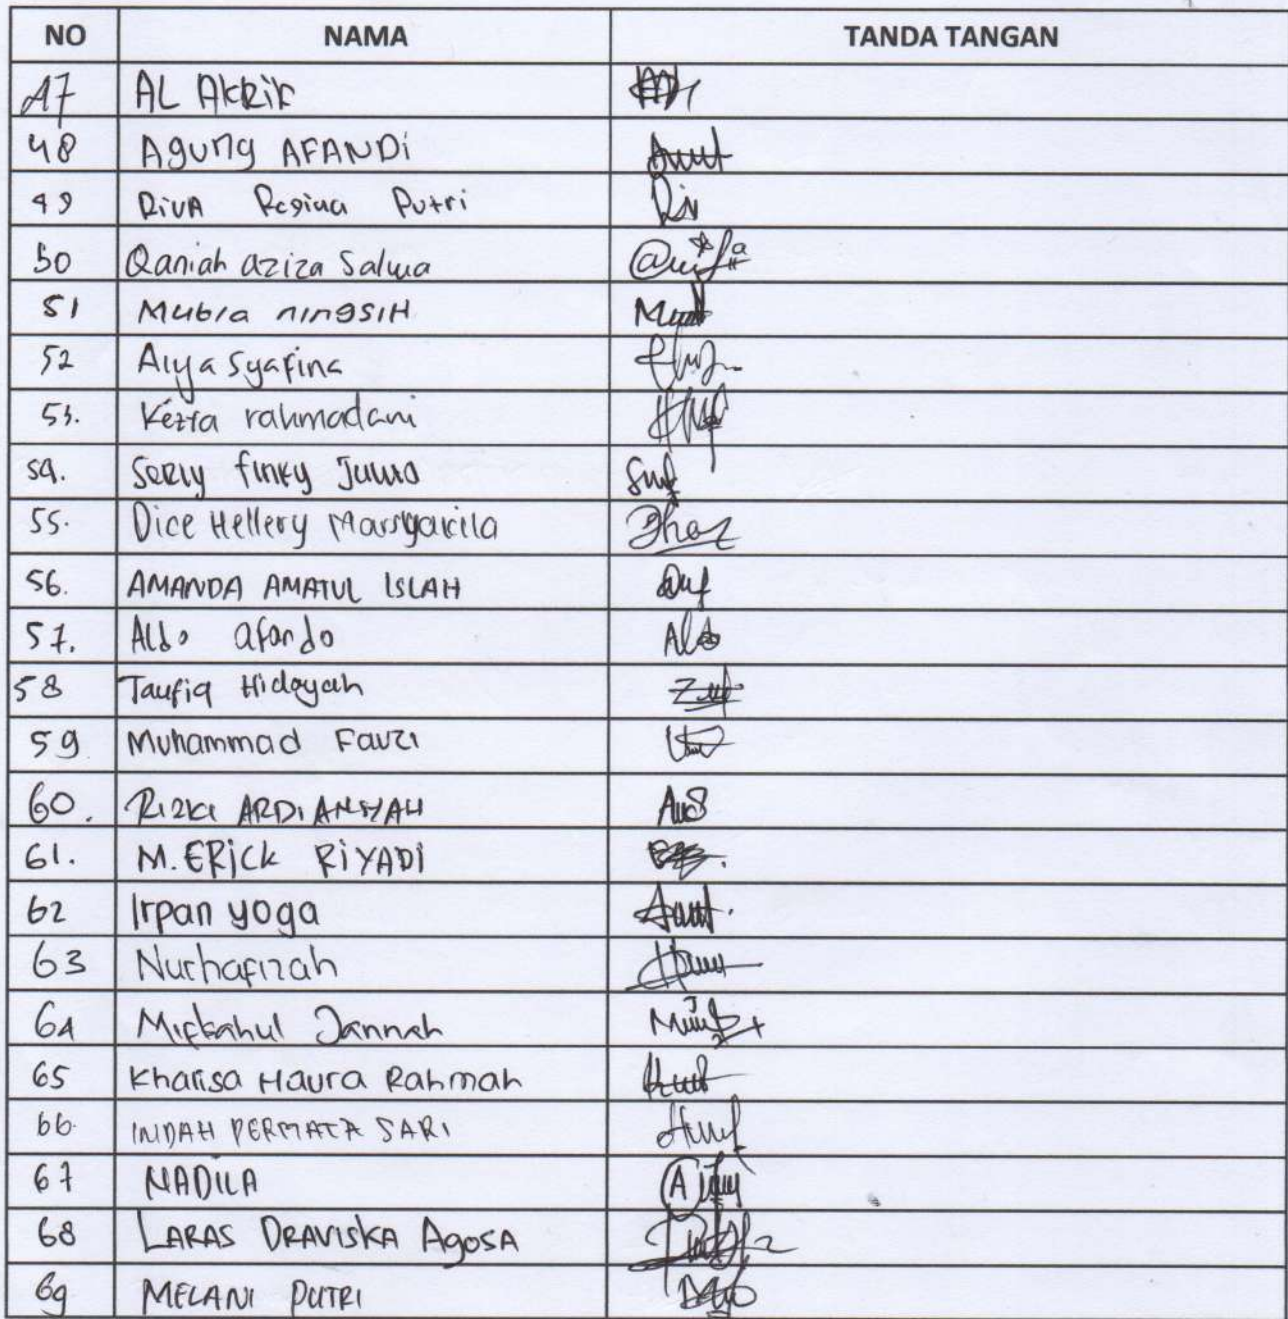 NO NAMA TANDA TANGAN
47 AL AKRIF
48 Agung AFANDi
49 RivA Regina Putri
50 Qaniah aziza Salwa
51 Mubia ningsiH
52 Alya Syafina
53. Kezia rahmadani
54. Serly finky Juwo
55. Dice Hellery
56. AMANDA AMATUL ISLAH
57. Aldo afando
58 Taufiq Hidayah
59 Muhammad Fauzi
60. Rizki ARDiANSYAH
61. M. ERicK RiYADi
62 Irpan yoga
63 Nurhafizah
64 Miftahul Jannah
65 Kharisa Haura Rahmah
66. INDAH PERMATA SARI
67 NADILA
68 LARAS DRAVISKA AgosA
69 MELANI PUTRI